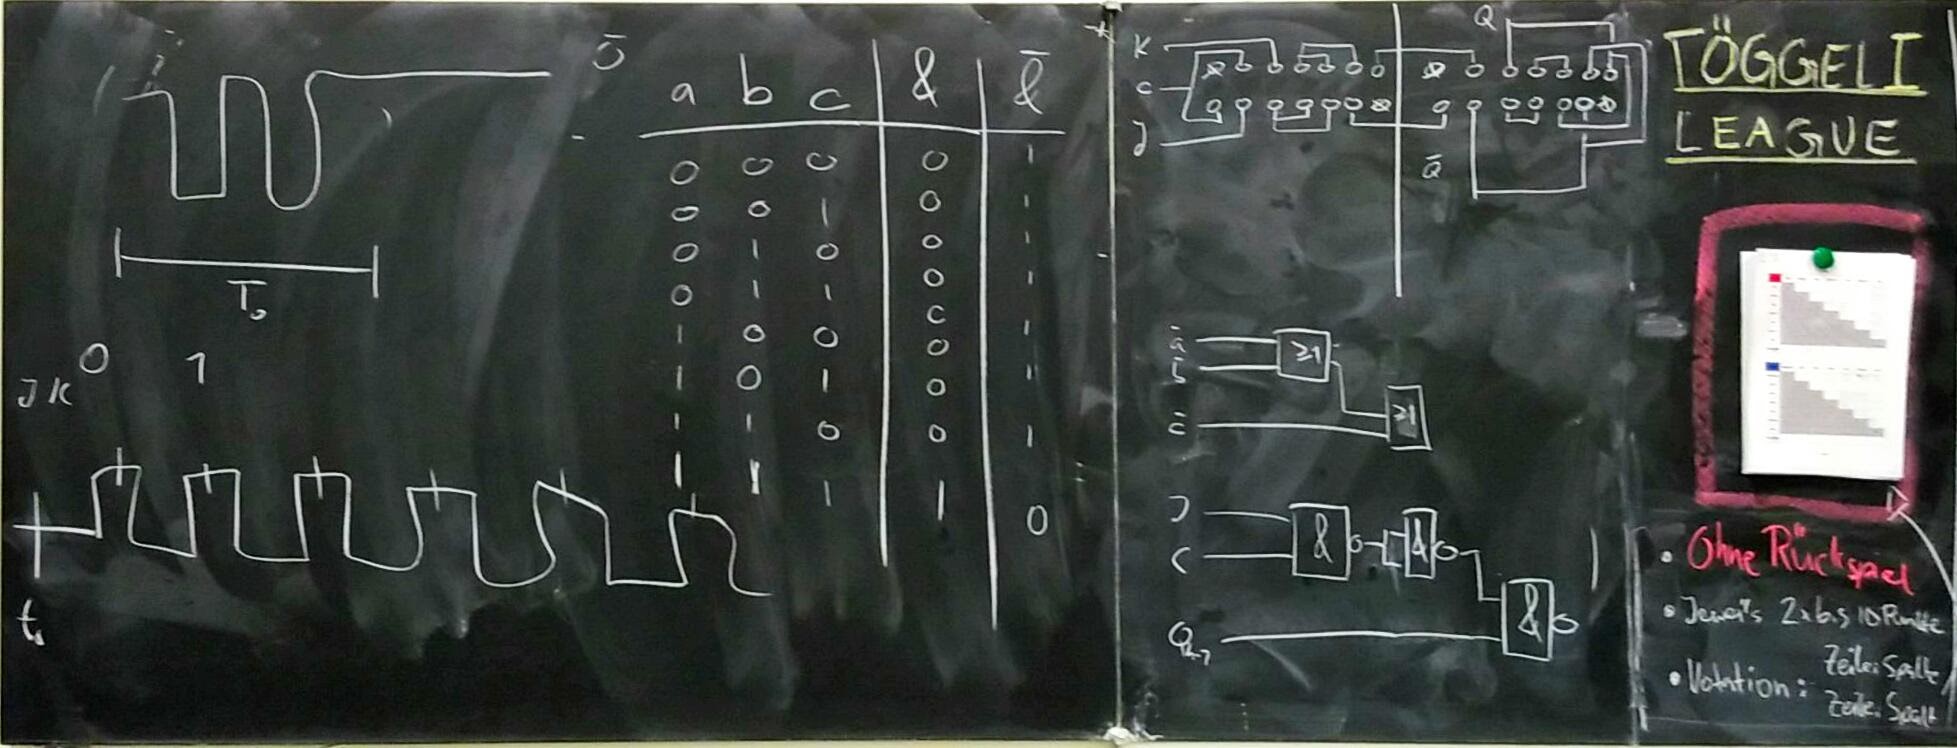 a b c & &̄
0 0 0 0 1
0 0 1 0 1
0 1 0 0 1
0 1 1 0 1
1 0 0 0 1
1 0 1 0 1
1 1 0 0 1
1 1 1 1 0
T₀
0 1
JK
K
C
J
Q
Q̄
≥1
≥1
J
C
& & &
TÖGGELI
LEAGUE
• Ohne Rückspiel
• Jeweils 2x bis 10 Punkte
• Notation: Zeile:Spalte
Zeile:Spalt